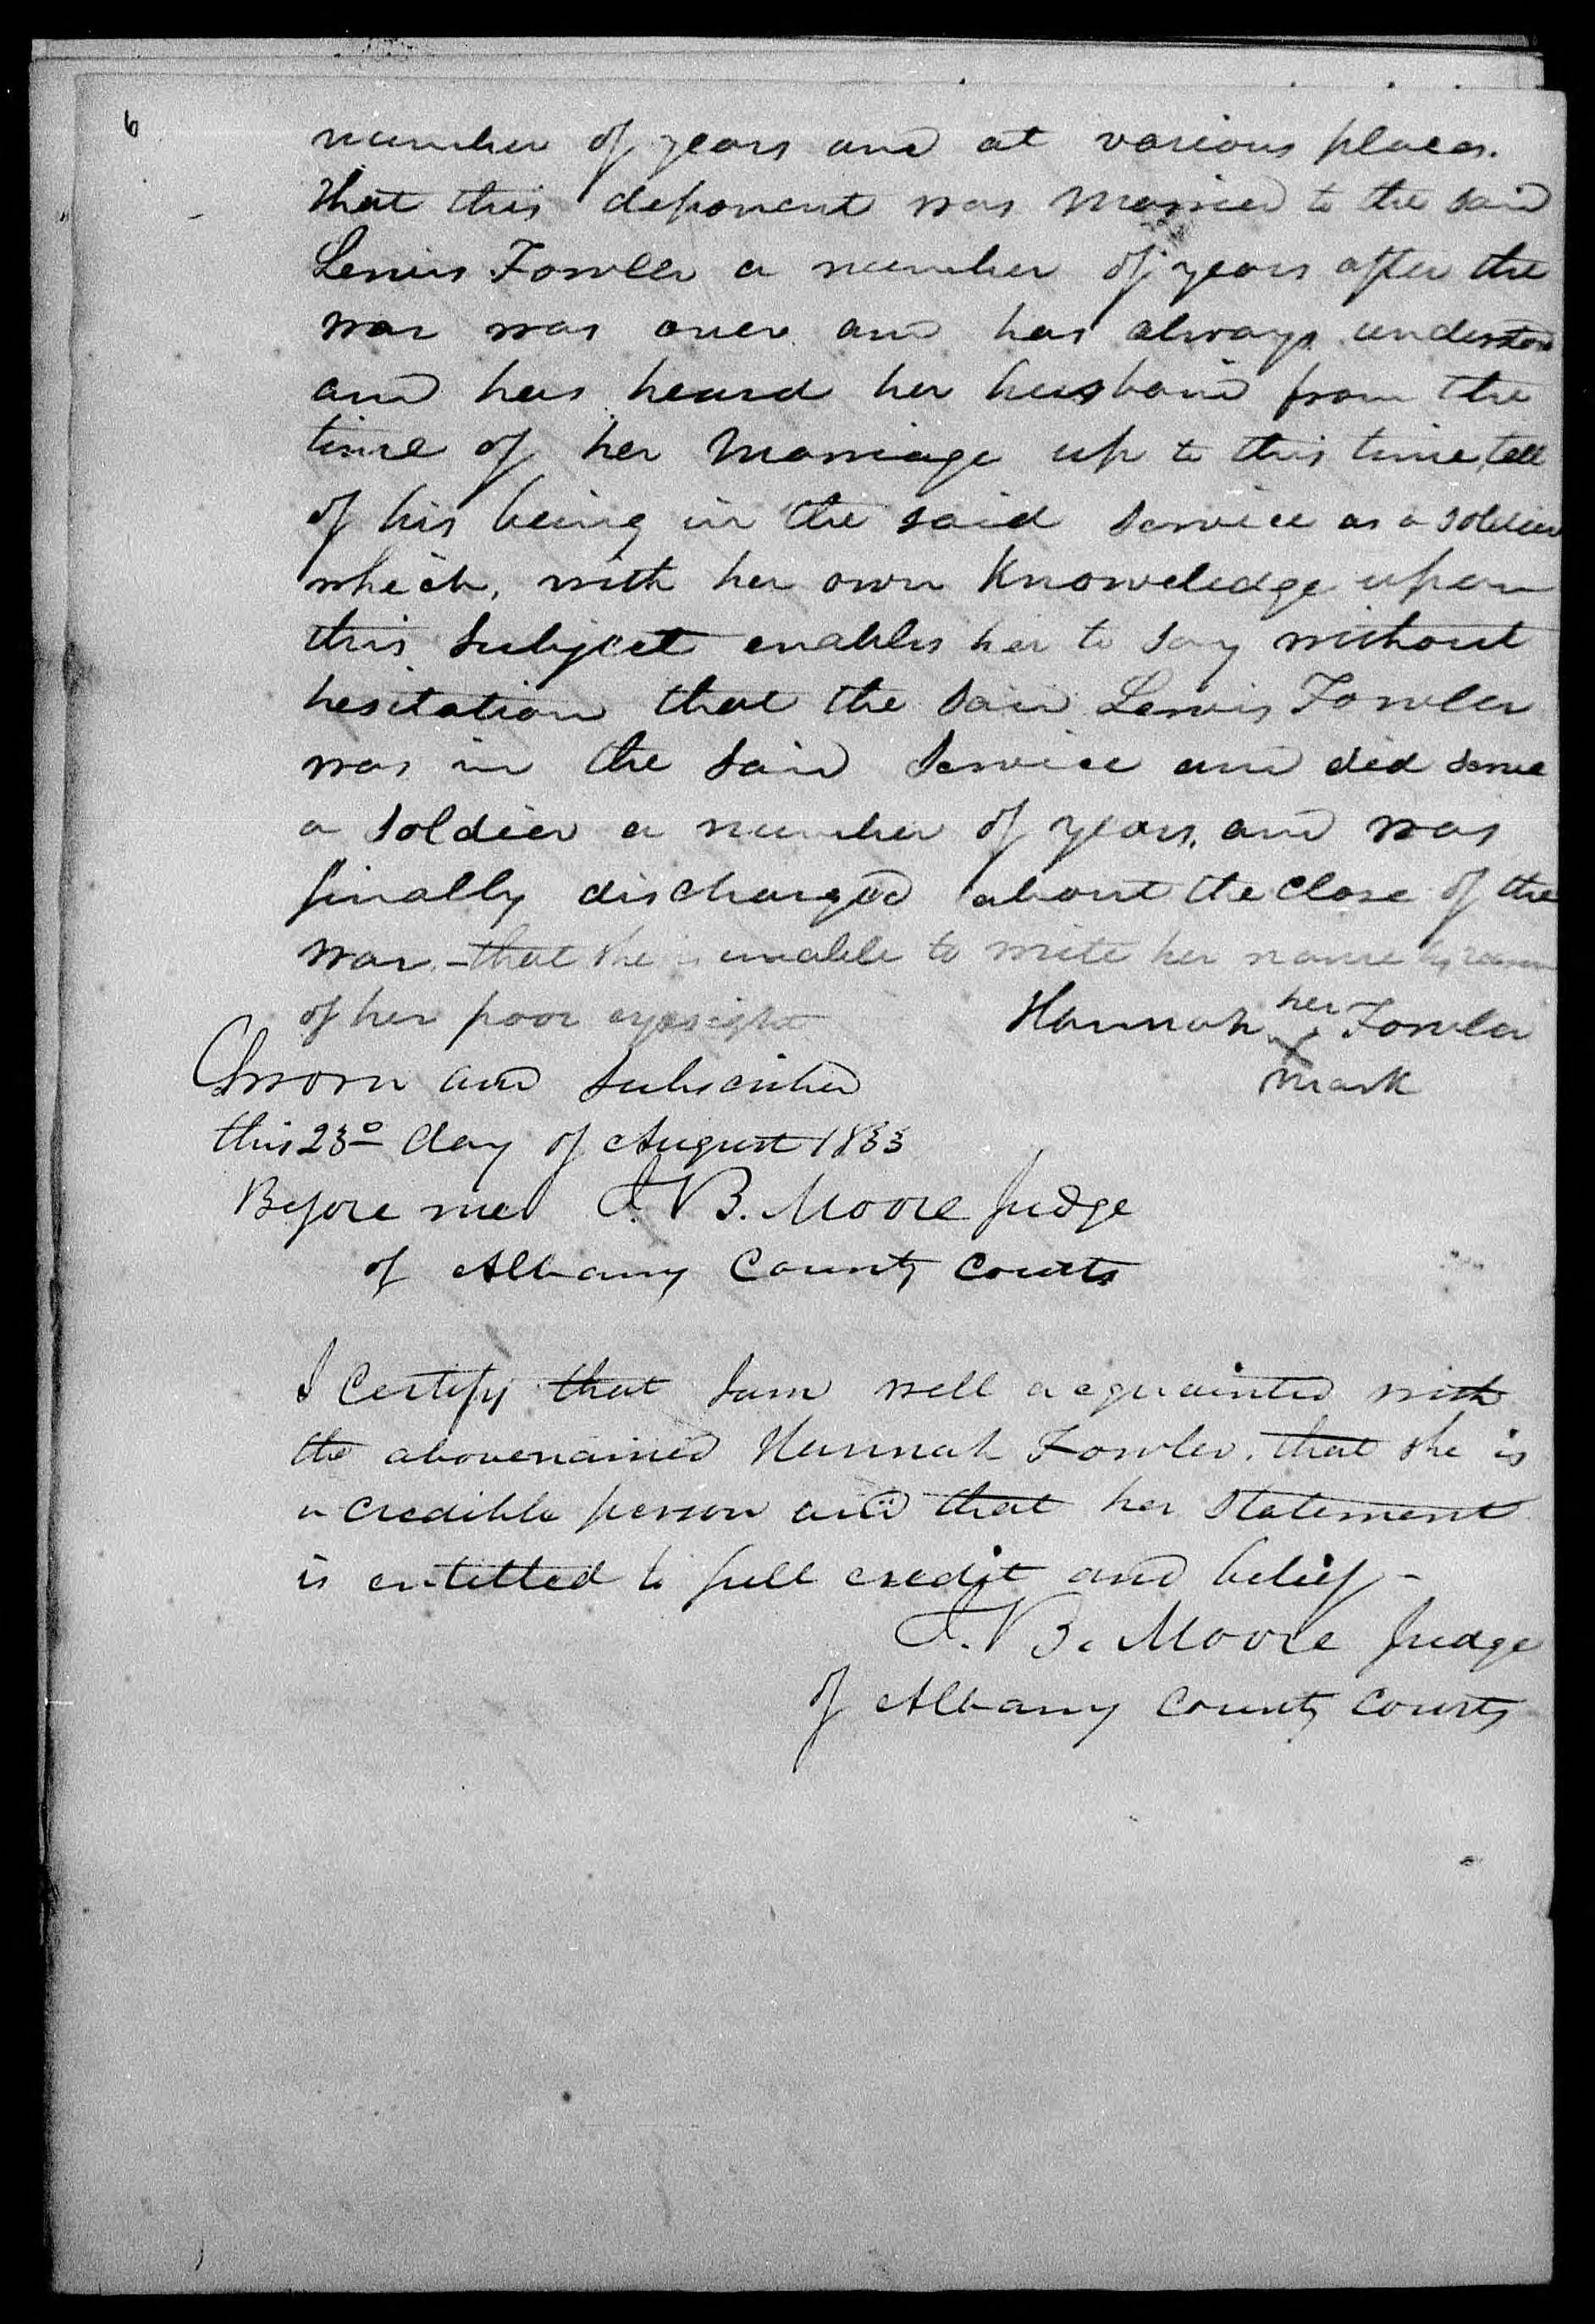 6
number of years and at various places.
that this deponent was married to the said
Lewis Fowler a number of years after the
war was over and has always understood
and has heard her husband from the
time of her marriage up to this time, tell
of his being in the said service as a soldier
which, with her own Knowledge upon
this subject enables her to say without
hesitation that the said Lewis Fowler
was in the said service and did serve
a soldier a number of years, and was
finally discharged about the close of the
war. - that she is unable to write her name by reason
of her poor eyesight
Hannah her Fowler
X
mark
Sworn and subscribed
this 23d day of August 1833
Before me J. B. Moore Judge
of Albany County Courts
I Certify that I am well acquainted with
the abovenamed Hannah Fowler. that she is
a credible person and that her statement
is entitled to full credit and belief -
J. B. Moore Judge
of Albany County Courts